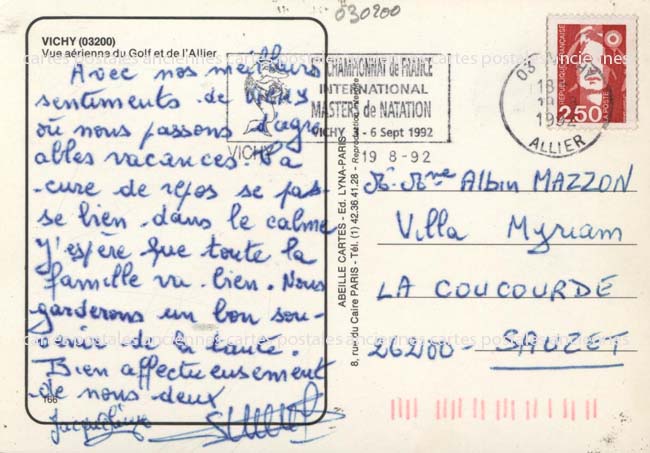 030200
VICHY (03200)
Vue aérienne du Golf et de l'Allier
Avec nos meilleurs
sentiments de Vichy
où nous passons d'agré
ables vacances. La
cure de repos se pas-
se bien dans le calme
J'espère que toute la
famille va bien. Nous
garderons un bon sou-
venir de la
Bien affectueusement
de nous deux
166
CHAMPIONNAT de FRANCE
INTERNATIONAL
MASTERS de NATATION
VICHY - 6 Sept 1992
VICHY
19 8-92
03
1992
ALLIER
RÉPUBLIQUE FRANÇAISE
2,50
LA POSTE
ABEILLE CARTES - Ed. LYNA-PARIS
8, rue du Caire PARIS - Tél. (1) 42.36.41.28 - Reproduction interdite
Mr. Mme Albin MAZZON
Villa Myriam
LA COUCOURDE
26200 - SAUZET
cartes postales anciennes cartes postales anciennes cartes postales anciennes